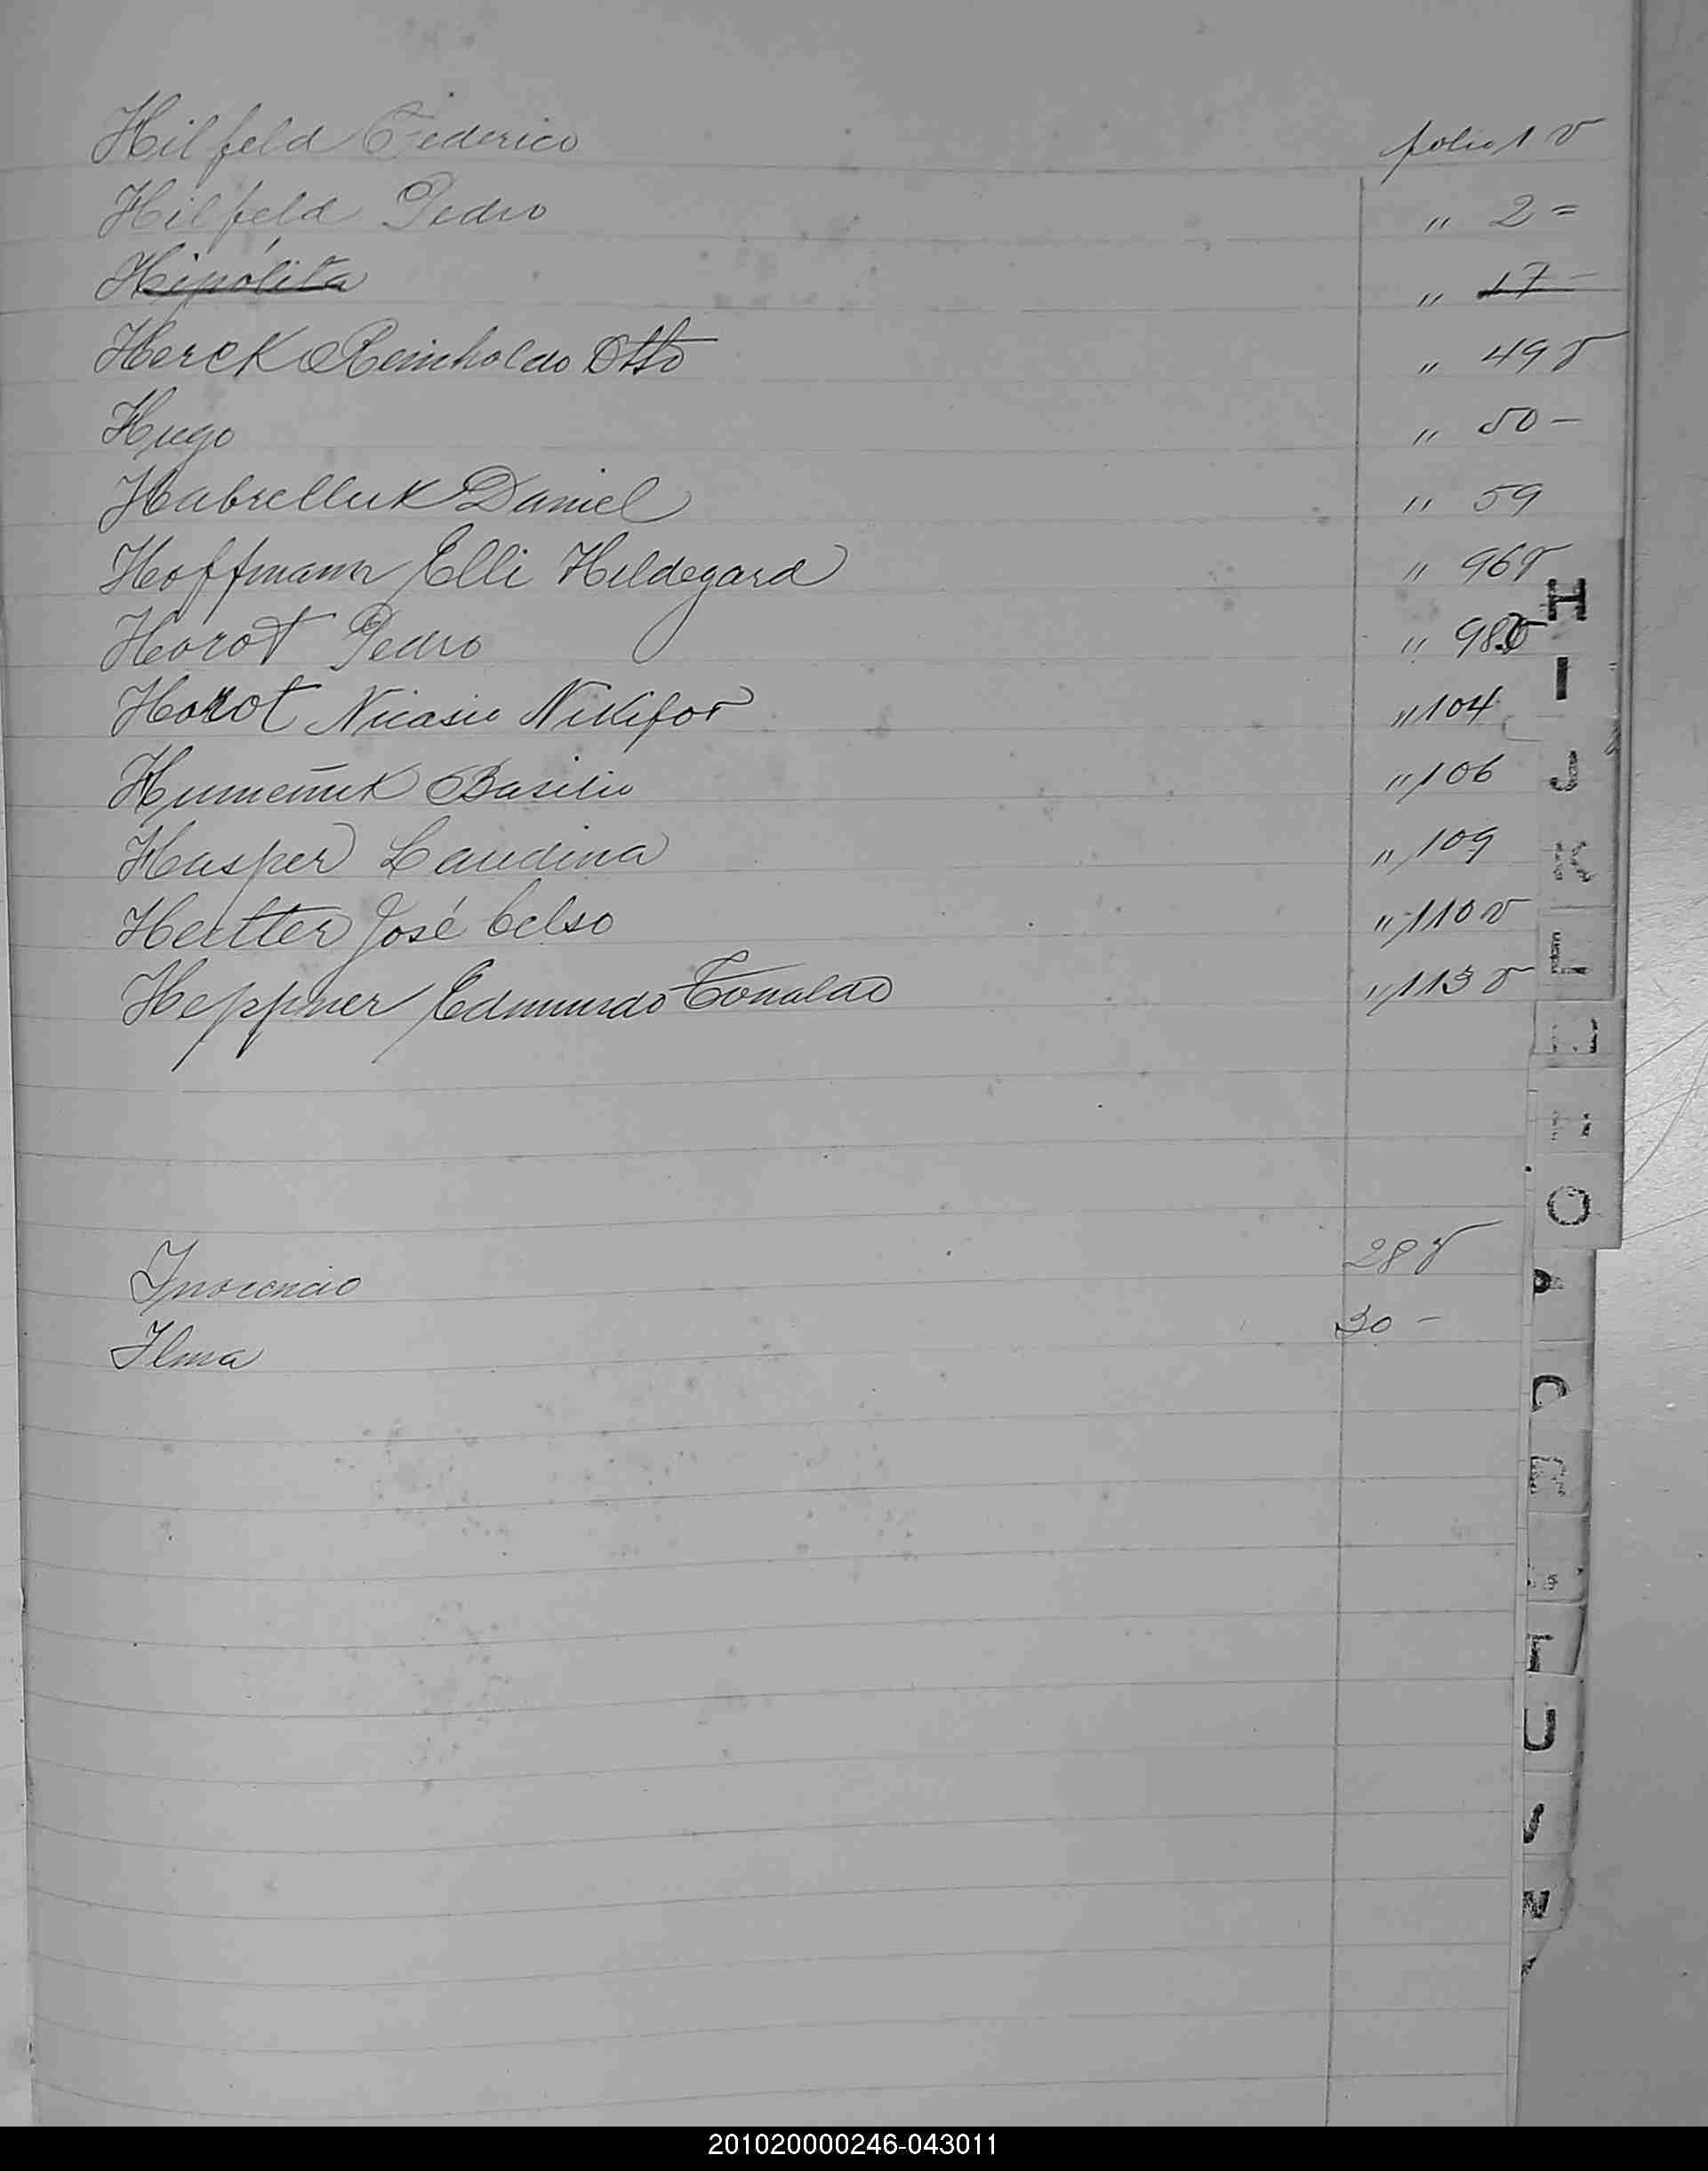 Hilfeld Federico folio 1 v
Hilfeld Pedro " 2 =
Hipólita " 17 -
Herck Reinholdo Otto " 49 v
Hugo " 50 -
Habrelluk Daniel " 59
Hoffmann Elli Hildegard " 96 v
Horot Pedro " 98 v
Horot Nicasio Nikifor " 104
Humeñuk Basilio " 106
Hasper Laudina " 109
José Celso " 110 v
Heppner Edmundo " 113 v
Inocencio 28 v
Ilma 30 -
H
I
J
K
L
O
P
T
U
V
W
201020000246-043011